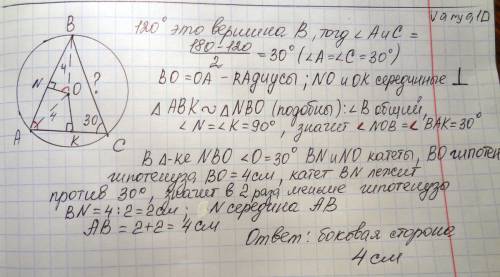 Varya,1D
120° это вершина B, тогд ∠A и C =
180-120
2
= 30° (∠A = ∠C = 30°)
BO = OA - Rадиусы; NO и OK серединные ⊥
△ ABK ~ △ NBO (подобны): ∠B общий,
∠N = ∠K = 90°, значит ∠NOB = ∠BAK = 30°
В △-ке NBO ∠O = 30° BN и NO катеты, BO гипотен
гипотенуза BO = 4см, катет BN лежит
против 30°, значит в 2 раза меньше гипотенузы
BN = 4:2 = 2см; N середина AB
AB = 2+2 = 4 см
Ответ: боковая сторона
4 см
B
4
N
?
O
4
30
A
K
C